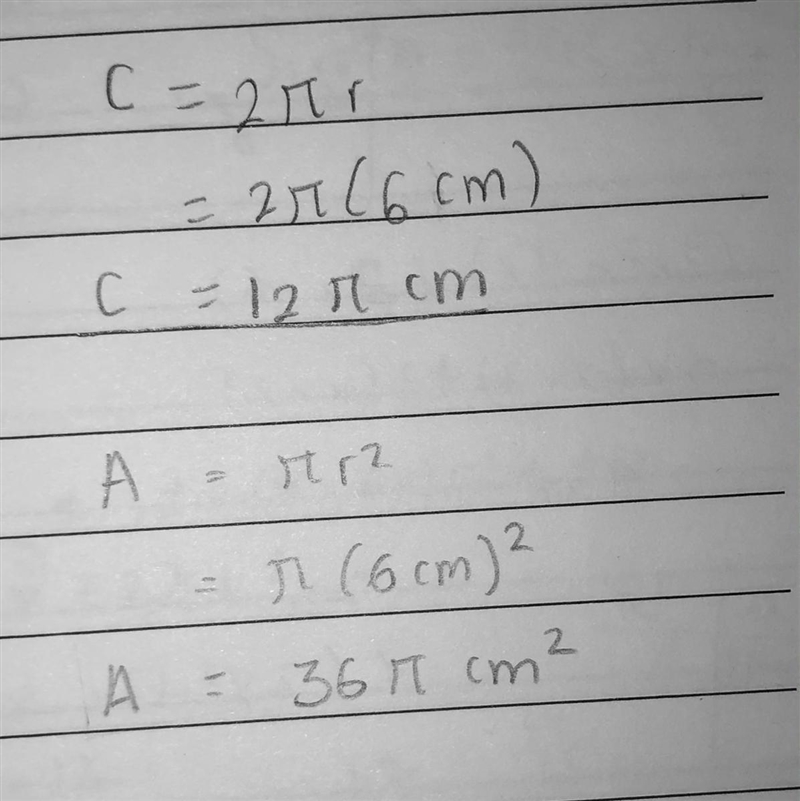 C = 2πr
= 2π(6 cm)
C = 12π cm
A = πr²
= π(6cm)²
A = 36π cm²